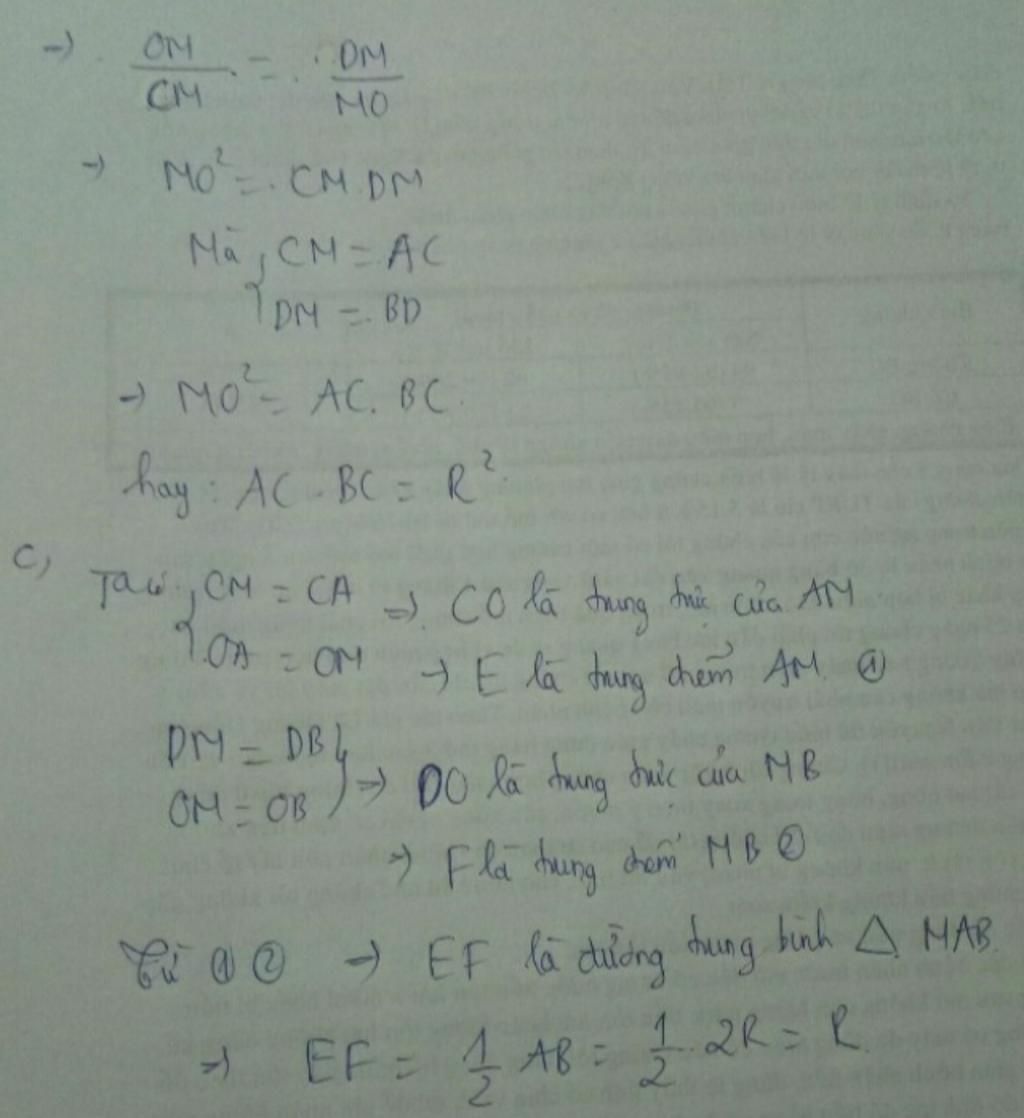 → OM/CM = DM/MO
→ MO² = CM.DM
Mà { CM = AC
DM = BD
→ MO² = AC. BC
hay : AC . BC = R²
C, Ta có { CM = CA
OA = OM => CO là trung trực của AM
→ E là trung điểm AM. ①
DM = DB
OM = OB } => DO là trung trực của MB
=> F là trung điểm MB ②
Từ ① ② → EF là đường trung bình △ MAB.
=> EF = 1/2 AB = 1/2 . 2R = R.